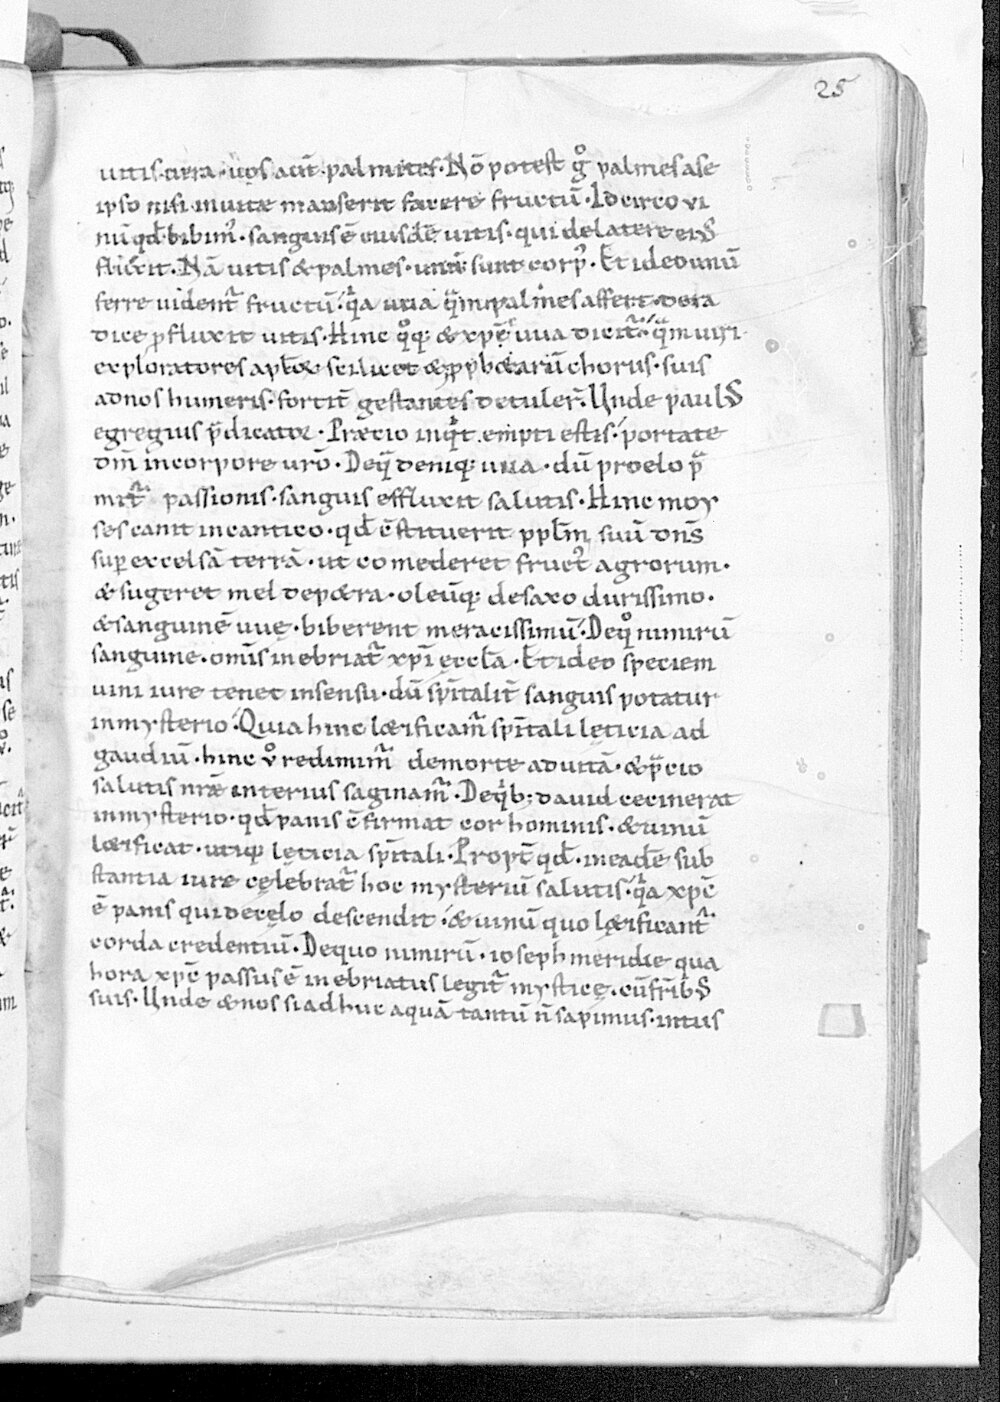 25
uitis uera · uos aut̄ palmites · Nō potest gͦ palmes a se
ipso nisi in uite manserit facere fructū · Idcirco vi
nū qđ bibimꝰ · sanguis ē eiusdē uitis · qui de latere eiꝰ
fluxit · Nā uitis & palmes · unū sunt corpꝰ · Et ideo unū
ferre uident̄ fructū · qͥa uua qm̄ in palmes affert · de ra
dice ꝓfluxit uitis · Hinc qͦq; & xpc̄ uua dicit̄ · qm̄ uiri
exploratores apl̄oꝝ scilicet & ꝓphetarū chorus · suis
ad nos humeris · fortit̄ gestantes detuler̄ · Unde paulꝰ
egregius p̄dicator · Precio inqͥt empti estis · portate
dm̄ in corpore urō · De qͣ deniq; uua · dū proelo p̄
mit̄ passionis · sanguis effluxit salutis · Hinc moy
ses canit in cantico · qđ c̄stituerit ppl̄m suū dn̄s
super excelsā terrā · ut comederet fructꝰ agrorum ·
& sugeret mel de petra · oleūq; de saxo durissimo ·
& sanguinē uuę · biberent meracissimū · De qͦ nimirū
sanguine · omīs inebriat̄ xpi ęccl̄a · Et ideo speciem
uini iure tenet in sensu · dū spītalit̄ sanguis potatur
in mysterio · Quia hinc lætificam̄ spītali lęticia ad
gaudiū · hinc vͦ redimim̄ de morte ad uitā · & p̄cio
salutis nr̄æ interius saginam̄ · De qͥb; dauid cecinerat
in mysterio · qđ panis c̄firmat cor hominis · & uinū
lætificat · utiq; lęticia spītali · Propt̄ qđ · in eadē sub
stantia iure celebrat̄ hoc mysteriū salutis · qͥa xpc̄
ē panis qui de cęlo descendit · & uinū quo lætificant̄
corda credentiū · De quo nimirū · ioseph meridie qua
hora xpc̄ passus ē inebriatus legit̄ mystice · cū fr̄ibꝰ
suis · Unde & nos si adhuc aquā tantū n̄ sapimus · intus